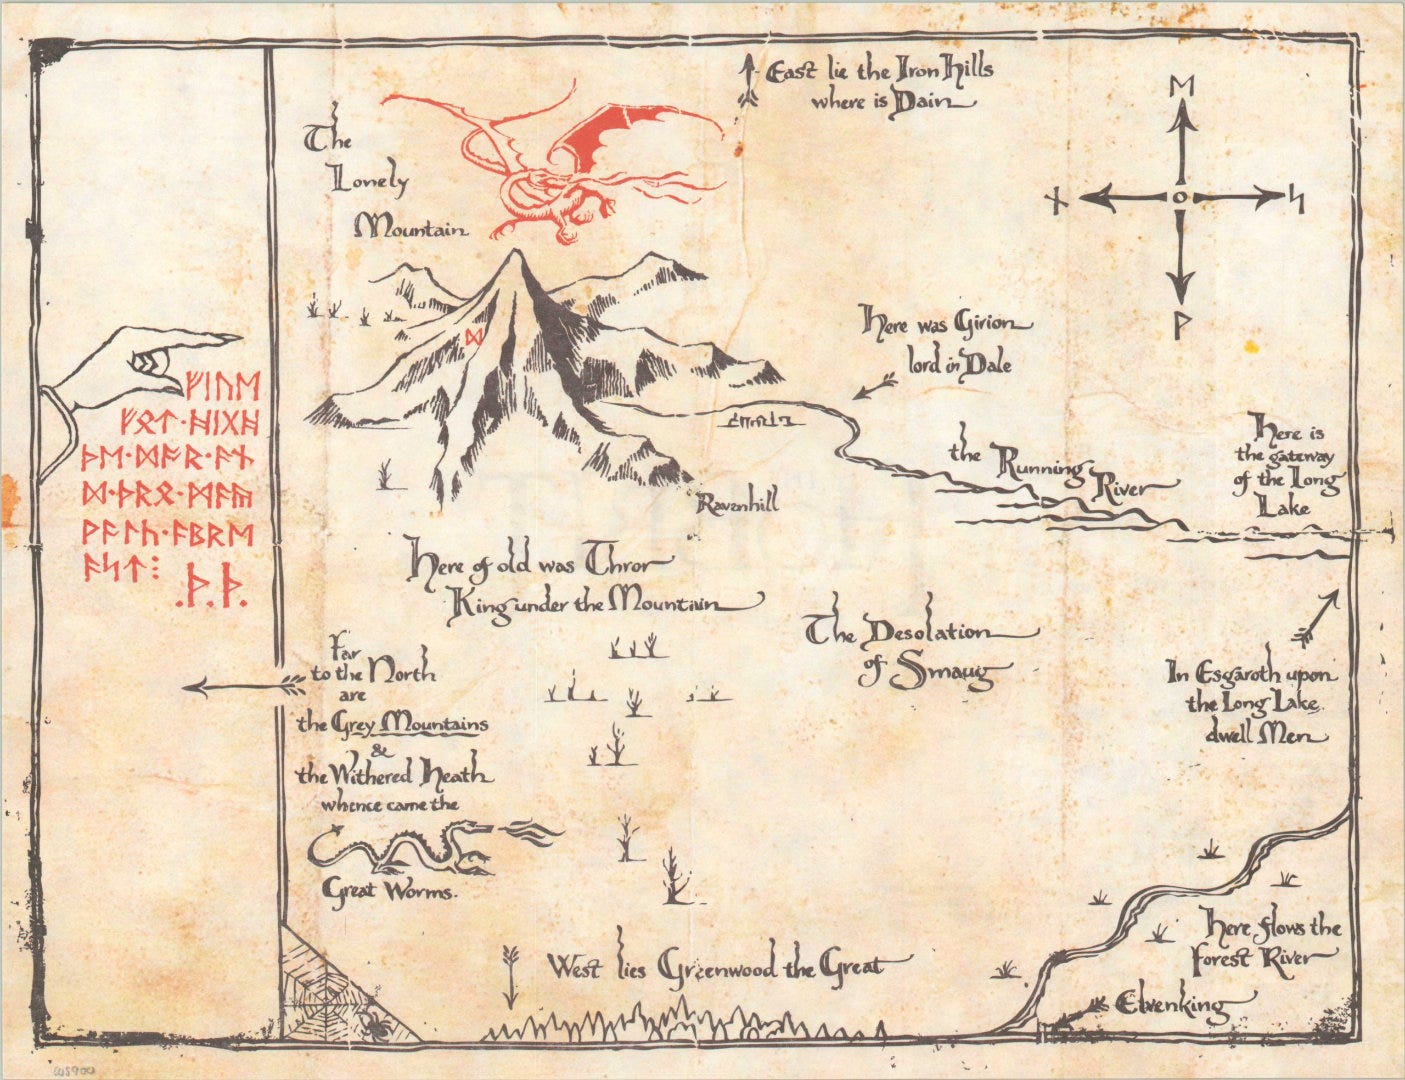 East lie the Iron Hills
where is Dain
The
Lonely
Mountain
ᛖ
ᚾ
ᛋ
ᚹ
ᛞ
Here was Girion
lord in Dale
ᚠᛁᚢᛖ
ᚠᛟᛏ·ᚻᛁᚷᚻ
ᚦᛖ·ᛞᚩᚱ·ᚪᚾ
ᛞ·ᚦᚱᛟ·ᛗᚪᚣ
ᚹᚪᛚᚳ·ᚪᛒᚱᛖ
ᚪᛋᛏ⋮
.ᚦ.ᚦ.
the Running
River
Here is
the gateway
of the Long
Lake
Ravenhill
Here of old was Thror
King under the Mountain
The Desolation
of Smaug
Far
to the North
are
the Grey Mountains
&
the Withered Heath
whence came the
Great Worms.
In Esgaroth upon
the Long Lake
dwell Men
West lies Greenwood the Great
Here flows the
Forest River
Elvenking